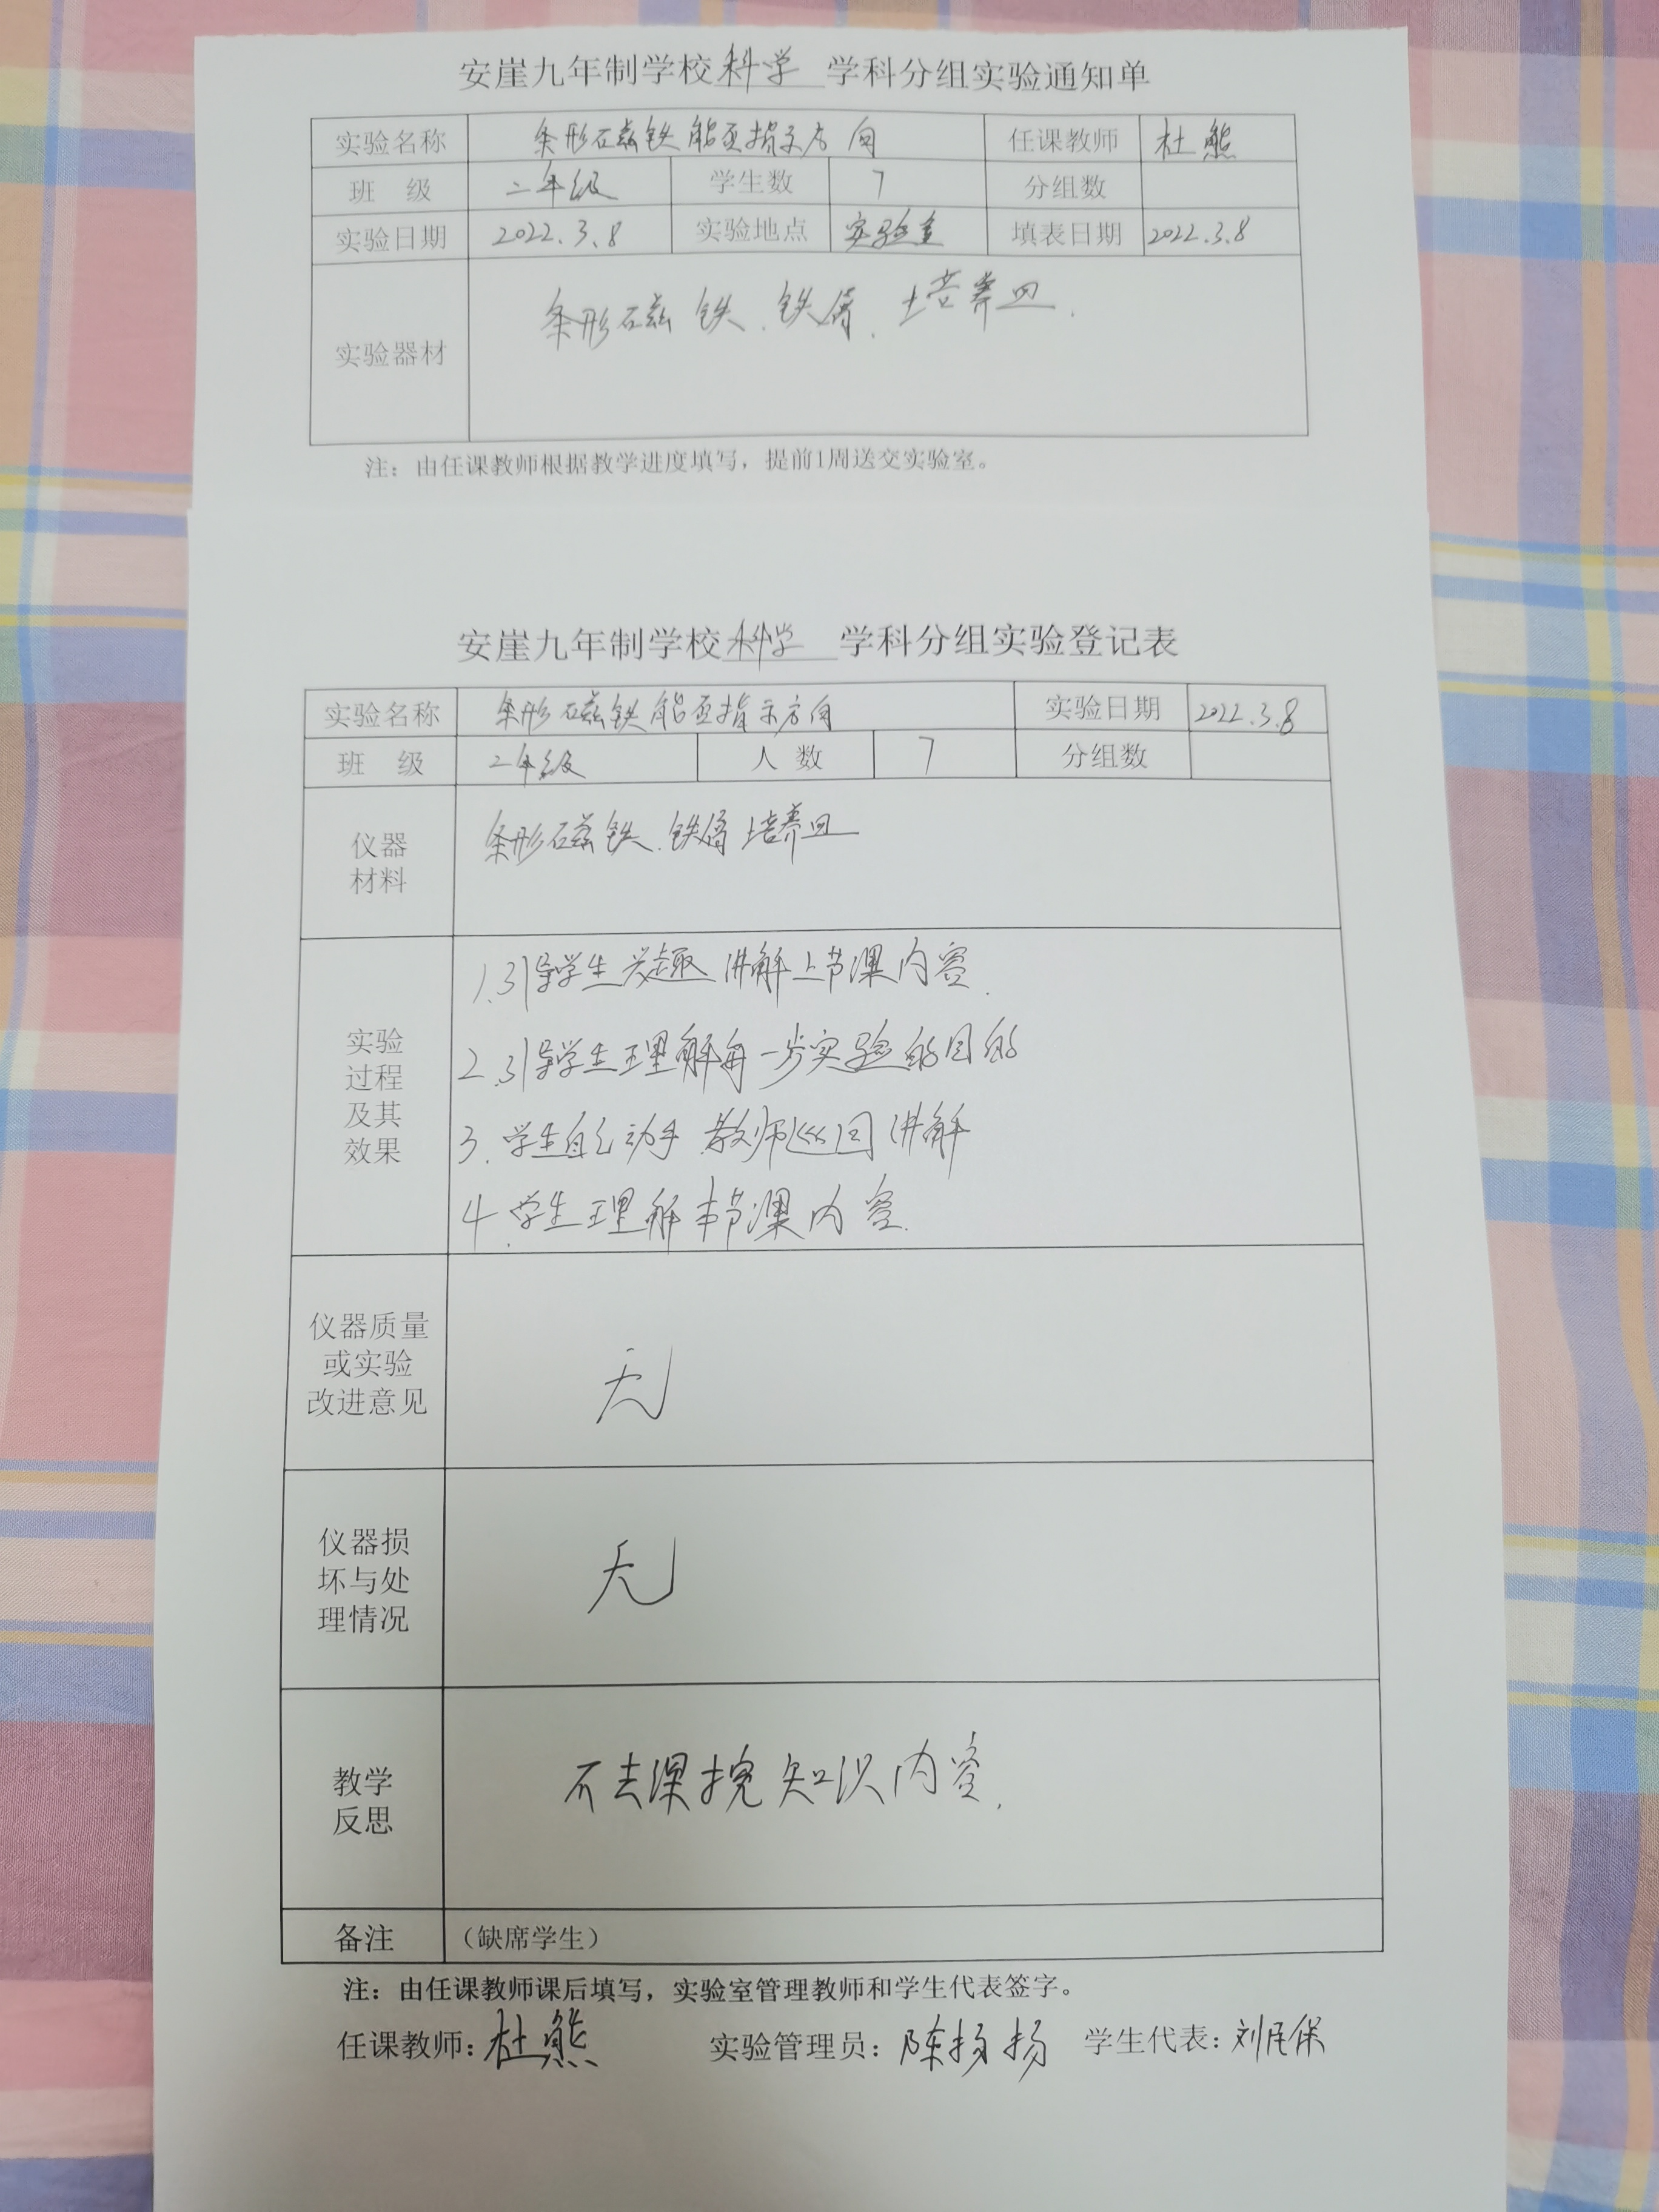 安崖九年制学校科学 学科分组实验通知单
实验名称 条形磁铁能否指示方向 任课教师 杜熊
班 级 二年级 学生数 7 分组数
实验日期 2022.3.8 实验地点 实验室 填表日期 2022.3.8
实验器材 条形磁铁、铁屑、培养皿.
注：由任课教师根据教学进度填写，提前1周送交实验室。
安崖九年制学校科学 学科分组实验登记表
实验名称 条形磁铁能否指示方向 实验日期 2022.3.8
班 级 二年级 人数 7 分组数
仪器
材料
条形磁铁、铁屑 培养皿
实验
过程
及其
效果
1.引导学生兴趣 讲解上节课内容.
2.引导学生理解每一步实验的目的
3.学生自己动手 教师巡回讲解
4.学生理解本节课内容.
仪器质量
或实验
改进意见
无
仪器损
坏与处
理情况
无
教学
反思
知识内容.
备注 （缺席学生）
注：由任课教师课后填写，实验室管理教师和学生代表签字。
任课教师：杜熊 实验管理员：陈扬扬 学生代表：刘保